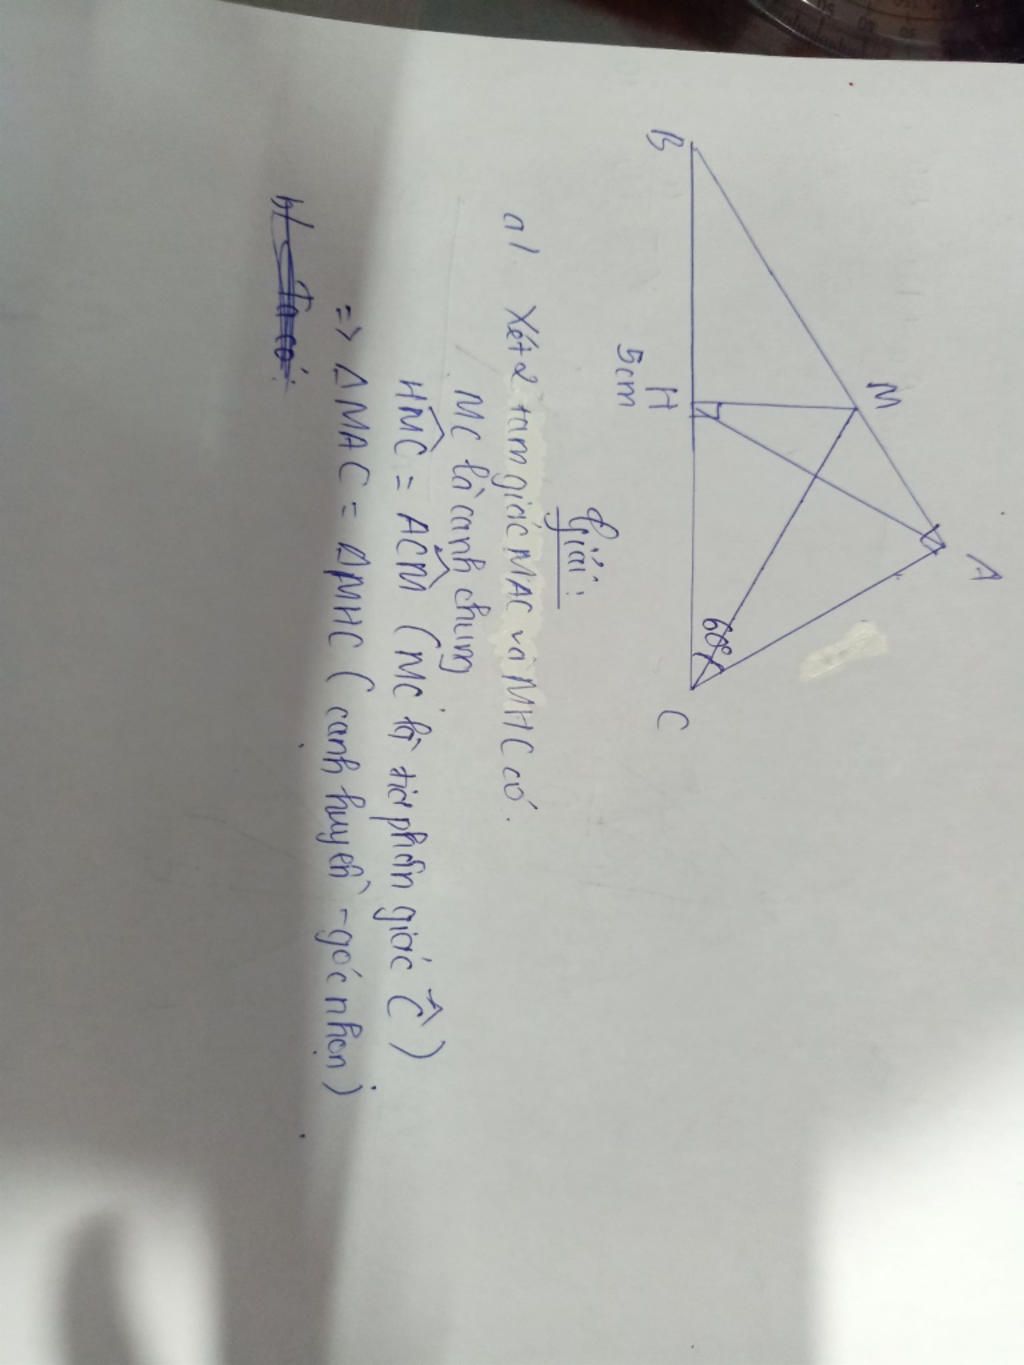 A
M
B
H
C
60°
5cm
Giải:
a/. Xét 2 tam giác MAC và MHC có.
MC là cạnh chung
HMC = ACM (MC là tia phân giác C)
=> ΔMAC = ΔMHC (cạnh huyền - góc nhọn)
b/ Ta có: